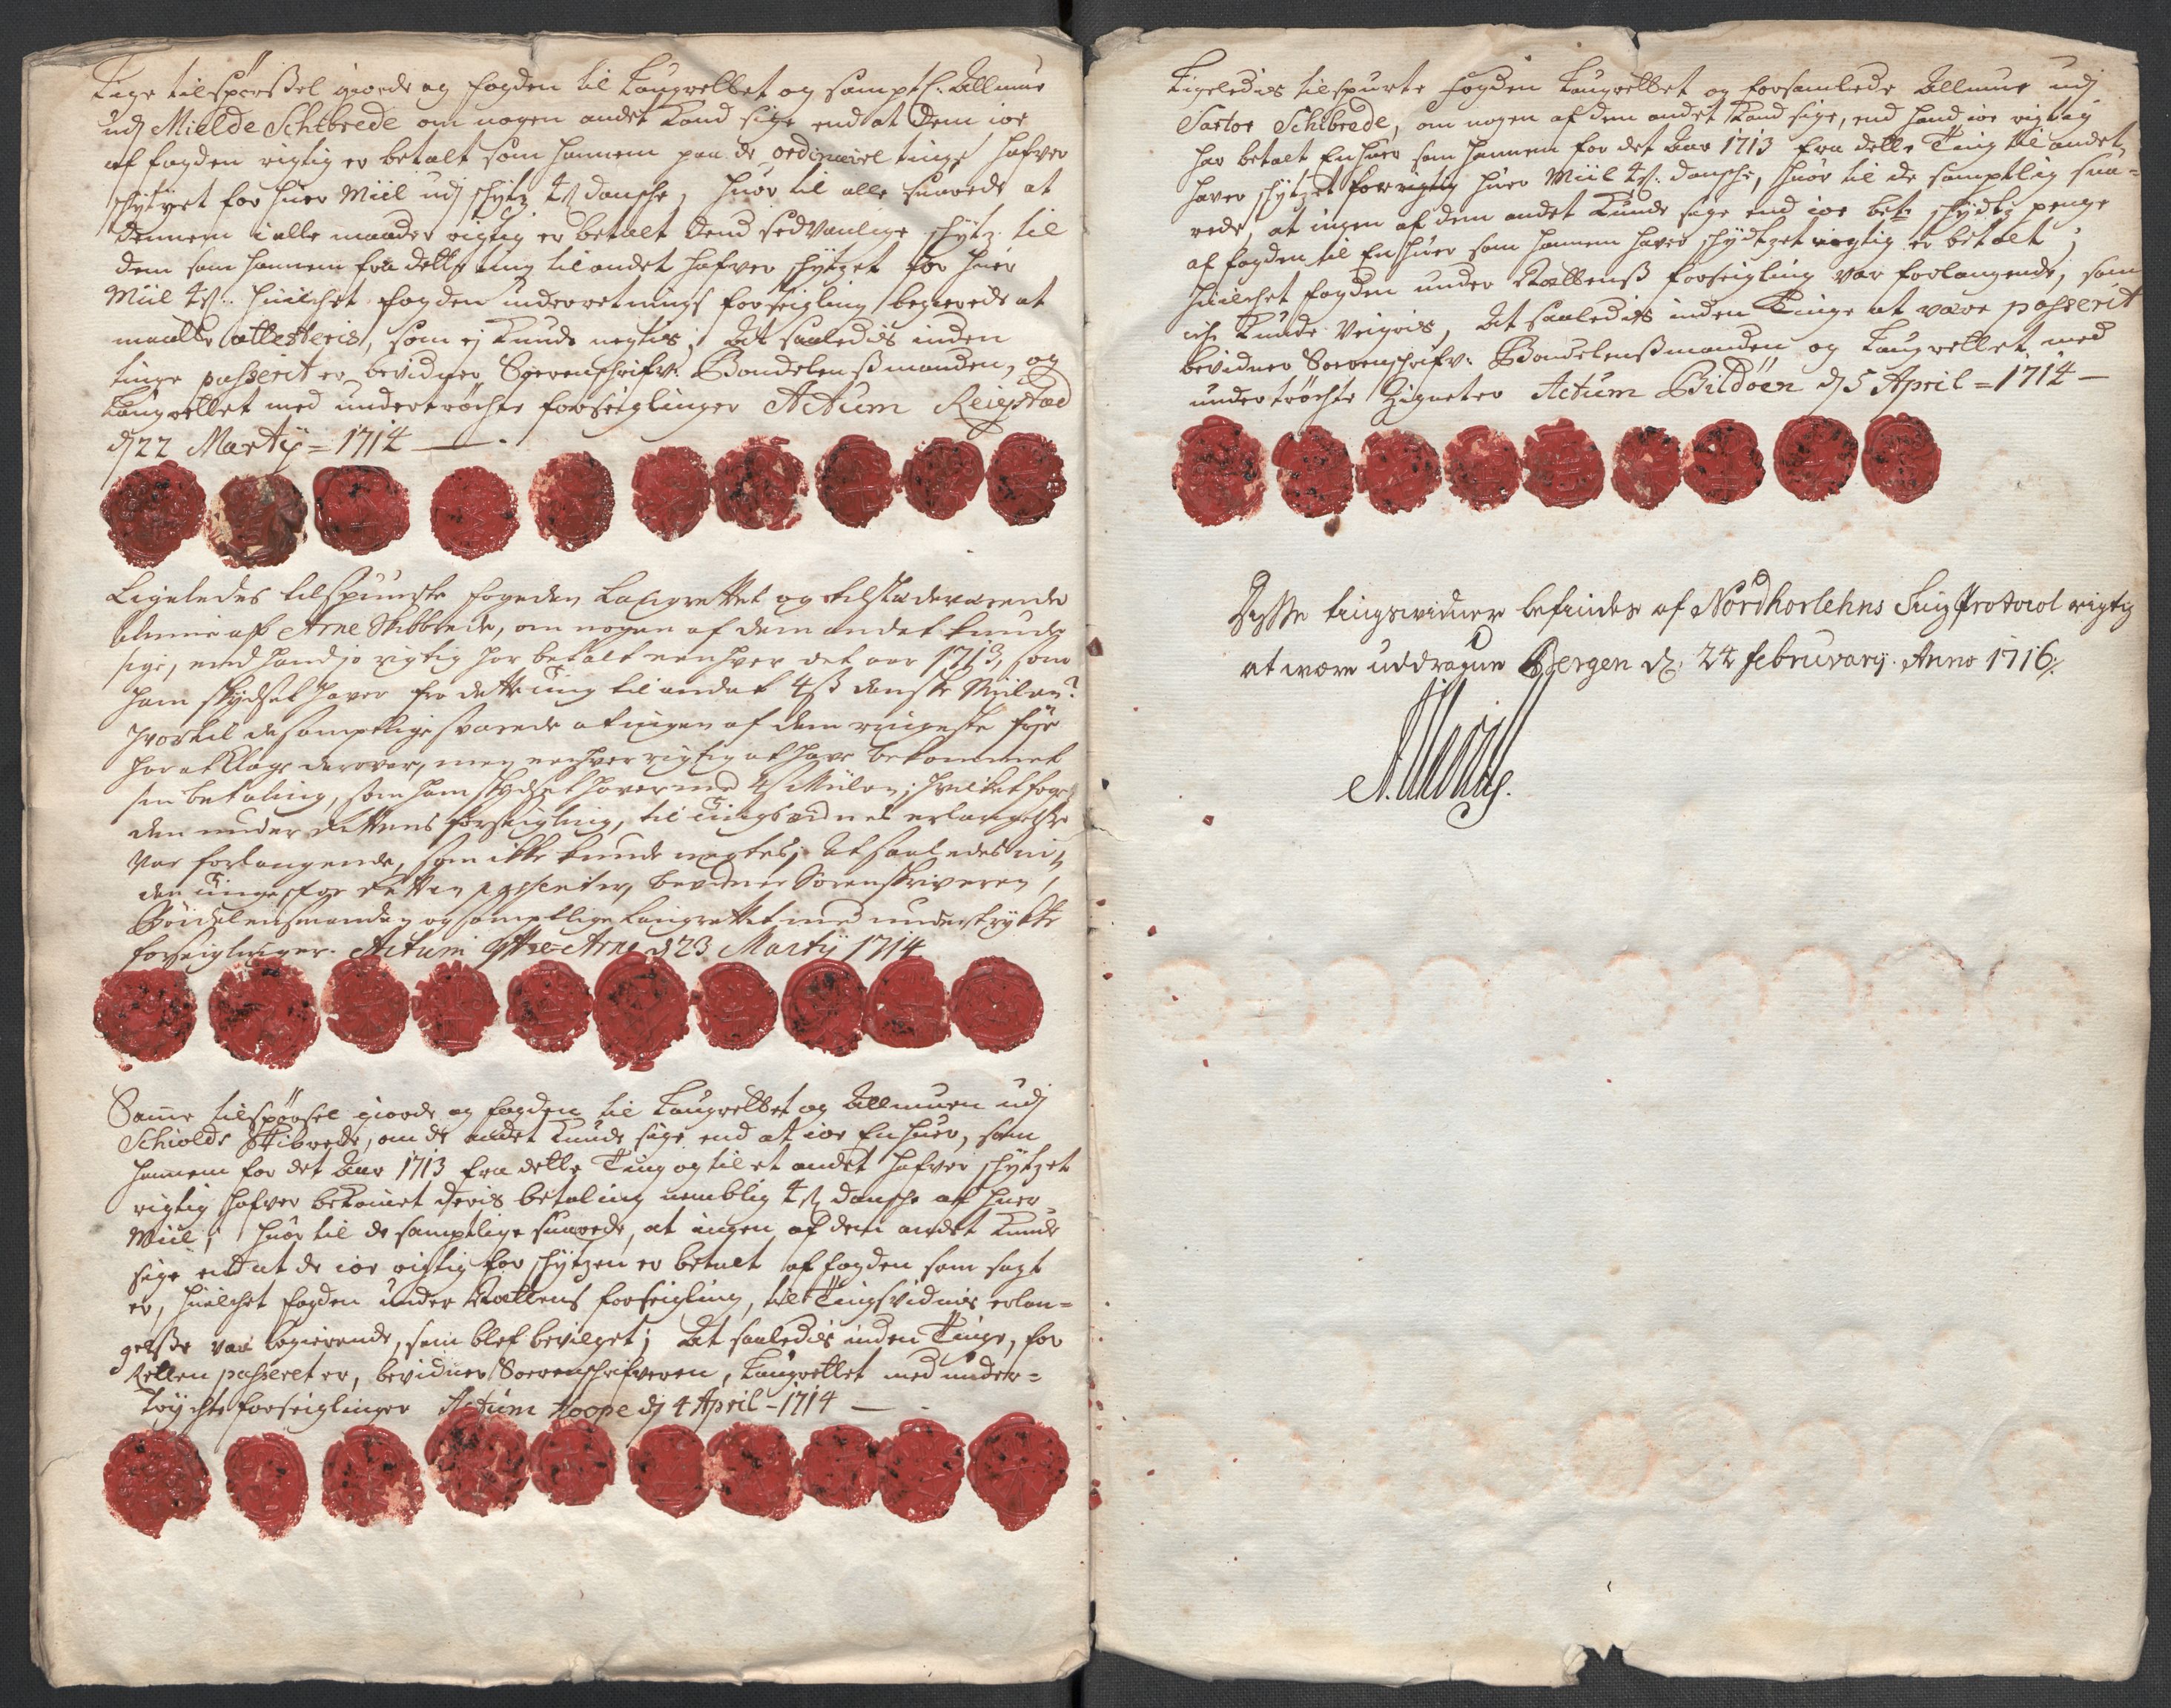 Lige tilspørsel giorde og fogden til Laugrettet og samptl: Allmue
udj Mielde Schibrede om nogen andet Kand sige end at dem ioe
af fogden rigtig er betalt som hannem paa de ordinairie tinge hafver
schytzet for huer Miil udj schytz 4 s danske, huor til alle suarede at
dennem i alle maader rigtig er betalt dend sedvanlige schytz til
dem som hannem fra dette ting til andet hafver schytzet for huer
Miil 4 s: huilchet fogden under rettings forseigling begierede at
maatte attesteris, som ej Kunde negtis; At saaledis inden
tinge passerit er bevidner Sorenschrifv: Bondelensmanden, og
Laugrettet med undertrøchte forseiglinger Actum Reigstad
d 22 Martij = 1714
Ligeledes tilspurte fogeden Laugrettet og tilstædeværende
almue aff Arne Skibbrede, om nogen af dem andet kunde
sige, end hand jo rigtig har betalt een hver det aar 1713, som
ham skydset haver fra dette ting til andet 4 s danske Miilen?
hvortil de samptlige svarede at ingen af dem ringeste føye
har at Klage derover, men een hver rigtig at have bekommet
sin betaling, som ham skydset haver med 4 s Miilen; hvilket fog-
den under Rettens forseigling, til tingsvidnes erlangelse
var forlangende, som ikke kunde negtes; At saaledes in-
den tinge for Retten passerit er, bevidner Sorenskriveren,
Bøndelensmanden og samptlige Laugrettet med undertrykte
forseiglinger. Actum Ytre Arne d 23 Martij 1714
Same tilspørsel giorde og fogden til Laugrettet og Allmuen udj
Schiolds Skibrede, om de andet Kunde sige end at ioe En huer, som
hannem for det Aar 1713 fra dette Ting og til et andet hafver schytzet
rigtig hafver bekomet deris betaling nemblig 4 s danske af huer
Miil; huor til de samptlige suarede, at ingen af dem andet Kunde
sige end at de ioe rigtig for schytzen er betalt af fogden som sagt
er, huilchet fogden under Rettens forseigling, til Tingsvidnis erlan=
gelse var begierende, som blef bevilget; At saaledis inden Tinge, for
Retten passeret er, bevidner Sorenschrifveren, Laugrettet med under=
trychte forseiglinger Actum Hoope dj 4 April - 1714
Ligeledis tilspurte fogden Laugrettet og forsamlede Allmue udj
Sartor Schibrede, om nogen af dem andet Kand sige, end hand ioe rigtig
har betalt En huer som hannem for det Aar 1713 fra dette Ting til andet
haver schytzet for rigtig huer Miil 4 s: danske, huor til de samptlig sua=
rede, at ingen af dem andet Kunde sige end ioe bete schydtz penge
af fogden til En huer som hannem haver schydtzet rigtig er betalt;
huilchet fogden under Rettens forseigling var forlangende, som
ich Kunde veigris, At saaledis inden Tinge at være passerit
bevidner Sorenschrifv: Bondelensmanden og Laugrettet med
undertrøchte Zigneter Actum Bildøen dj 5 April = 1714
Disse tingsvidner befindes af Nordhorlehns Ting Protocol rigtig
at være uddragne Bergen d. 24 februarij. Anno 1716